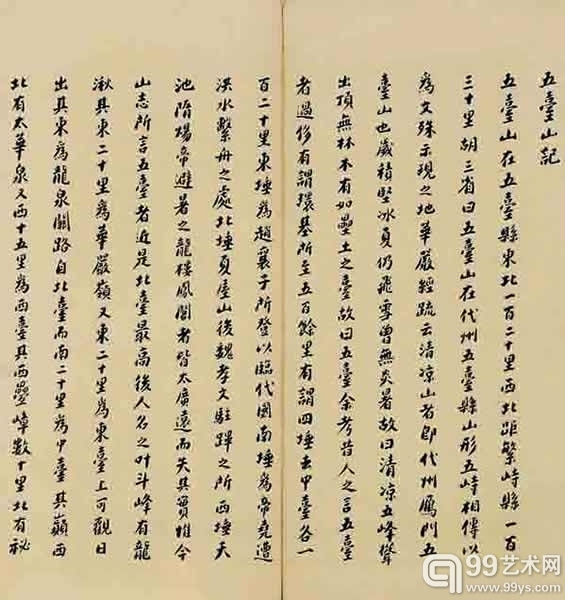 五臺山記
五臺山在五臺縣東北一百二十里西北距繁峙縣一百
三十里胡三省曰五臺山在代州五臺縣山形五峙相傳以
為文殊示現之地華嚴經疏云清凉山者即代州鴈門五
臺山也歲積堅冰夏仍飛雪曾無炎暑故曰清凉五峰聳
出頂無林木有如壘土之臺故曰五臺余考昔人之言五臺
者過侈有謂環基所至五百餘里有謂四埵去中臺各一
百二十里東埵為趙襄子所登以臨代國南埵為帝堯遭
洪水繫舟之處北埵夏屋山後魏孝文駐蹕之所西埵天
池隋煬帝避暑之龍樓鳳闕者皆太廣遠而失其實惟今
山志所言五臺者近是北臺最高後人名之叶斗峰有龍
湫其東二十里為華嚴嶺又東二十里為東臺上可觀日
出其東為龍泉關路自北臺而南二十里為中臺其巔西
北有太華泉又西十五里為西臺其西疊嶂數十里北有祕
99艺术网
www.99ys.com